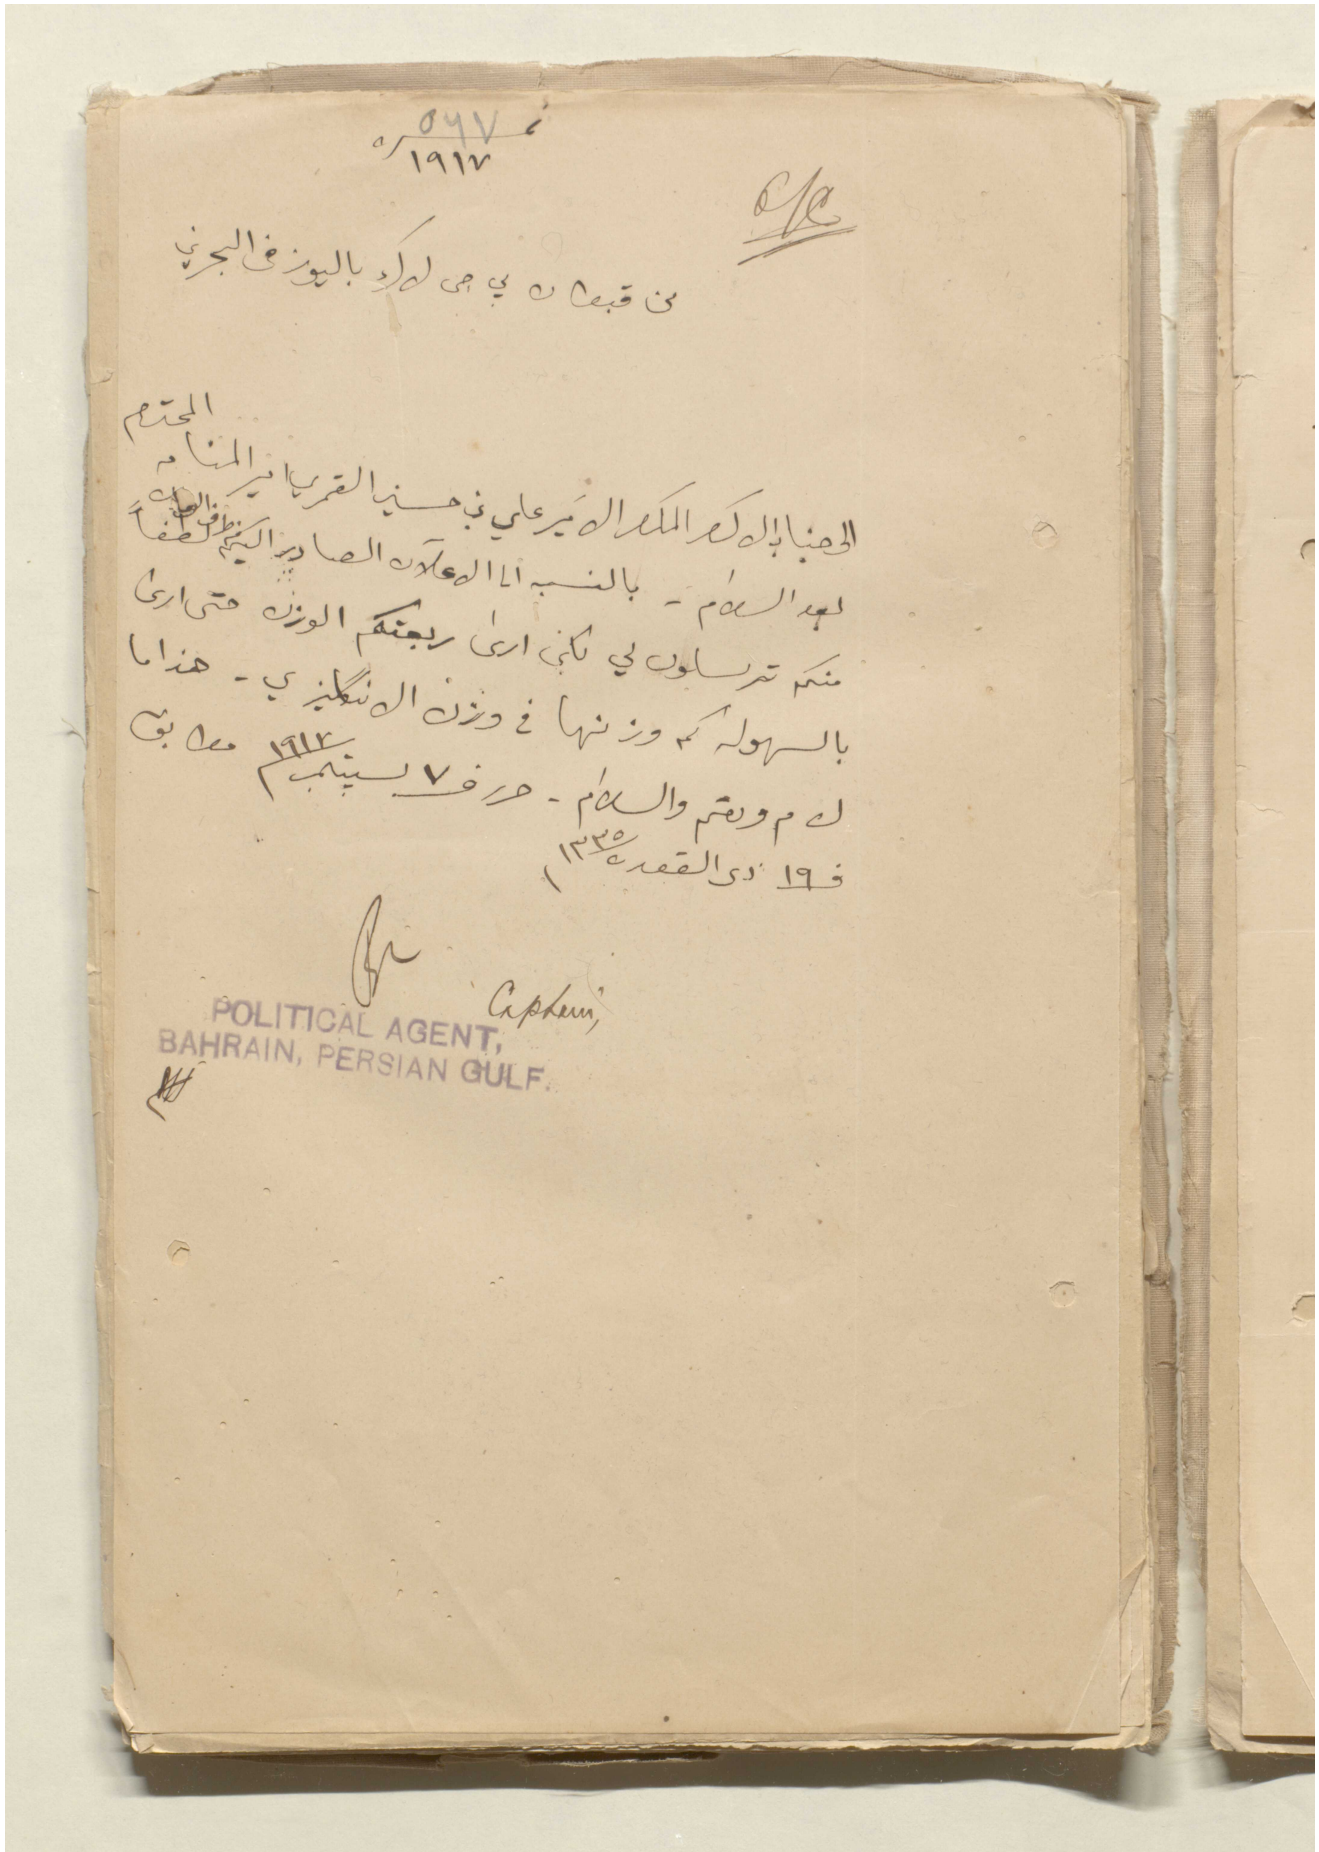 نمرة ٥٦٧
١٩١٧
O/C
من قبطان پي جي لاك باليوز في البحرين
المحترم
الى جناب الاكرم المكرم الامير علي بن حسين القمري امير المنامه
بعد السلام - بالنسبه الى الاعلان الصادر اليكم لطفاً
منكم ترسلون لي لكي ارى ربعتكم الوزن حتى ارى
بالسهوله كم وزنها في وزن الانگليزي - هذا ما
لزم ودمتم والسلام - حرر في ٧ سپتمبر ١٩١٧ مطابق
في ١٩ ذي القعده ١٣٣٥
Captain,
POLITICAL AGENT,
BAHRAIN, PERSIAN GULF.